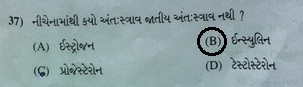 37) નીચેનામાંથી કયો અંતઃસ્ત્રાવ જાતીય અંતઃસ્ત્રાવ નથી ?
(A) ઈસ્ટ્રોજન (B) ઈન્સ્યુલિન
(C) પ્રોજેસ્ટેરોન (D) ટેસ્ટોસ્ટેરોન